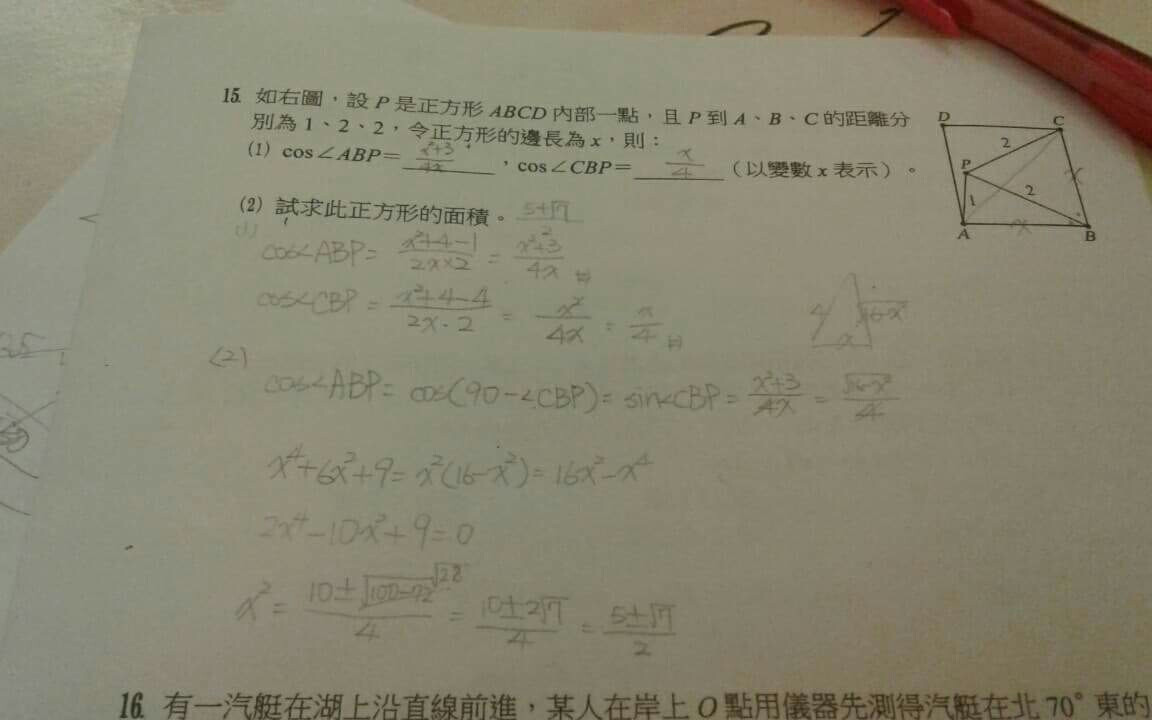 15. 如右圖，設 P 是正方形 ABCD 內部一點，且 P 到 A、B、C 的距離分
別為 1、2、2，令正方形的邊長為 x，則：
(1) cos∠ABP= x²+3/4x ，cos∠CBP= x/4 （以變數 x 表示）。
(2) 試求此正方形的面積。 5+√7/2
D C
2
P x
1 2
A x B
(1)
cos∠ABP = x²+4-1/2x×2 = x²+3/4x
cos∠CBP = x²+4-4/2x·2 = x²/4x = x/4
4 √16-x²
x
(2)
cos∠ABP = cos(90-∠CBP) = sin∠CBP = x²+3/4x = √16-x²/4
x⁴+6x²+9 = x²(16-x²) = 16x²-x⁴
2x⁴-10x²+9=0
x² = 10±√100-72/4 √28 = 10±2√7/4 = 5±√7/2
16. 有一汽艇在湖上沿直線前進，某人在岸上 O 點用儀器先測得汽艇在北 70° 東的